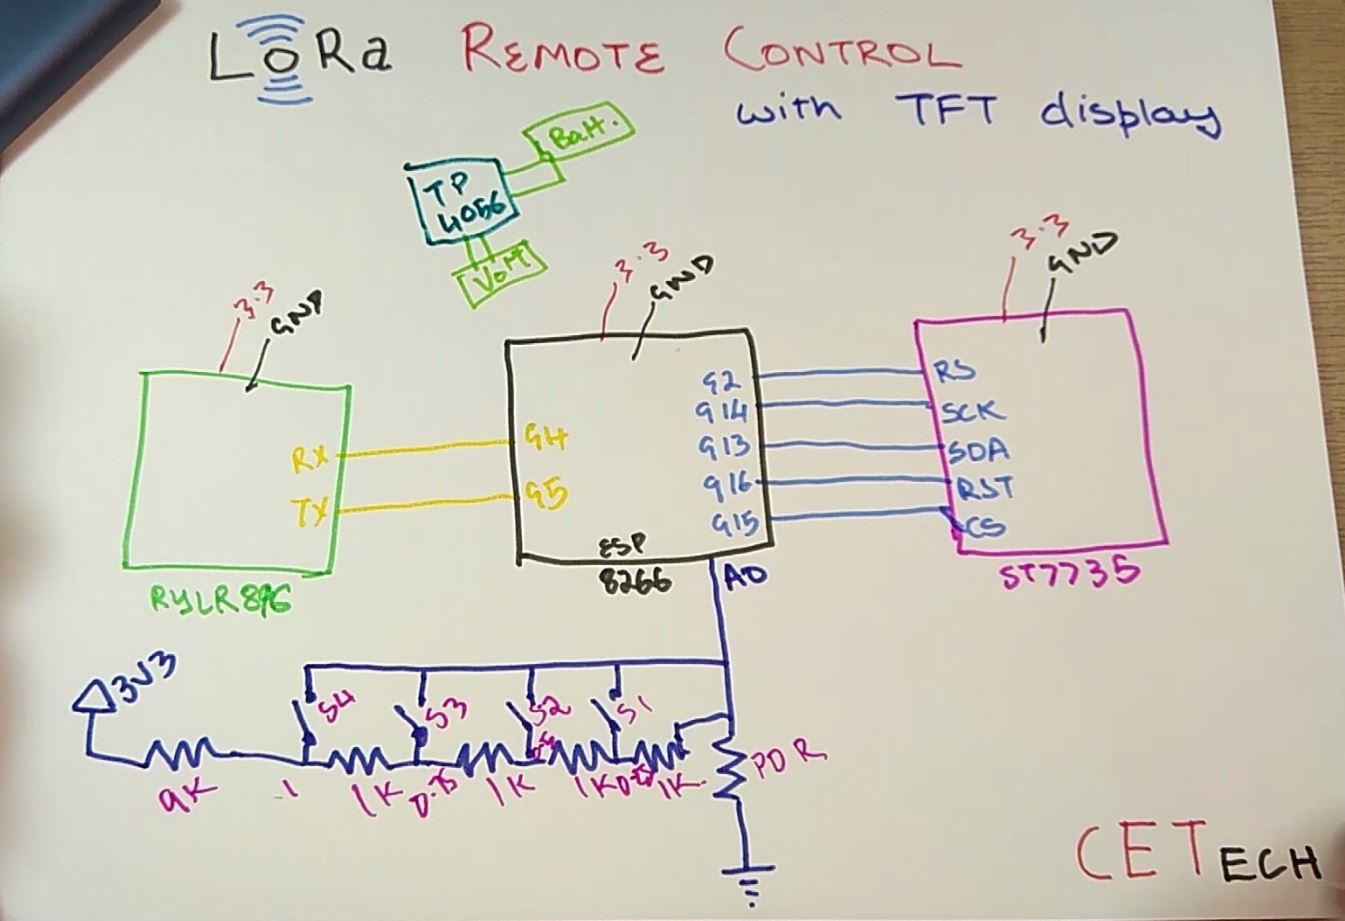 LoRa REMOTE CONTROL
with TFT display
Batt.
TP
4056
3.3
GND
3.3
GND
3.3
GND
RX
TX
RYLR896
G4
G5
G2
G14
G13
G16
G15
ESP
8266
A0
RS
SCK
SDA
RST
CS
ST7735
3V3
S4
S3
S2
S1
9K
1
1K
0.75
1K
1K
1K
PDR
CETECH